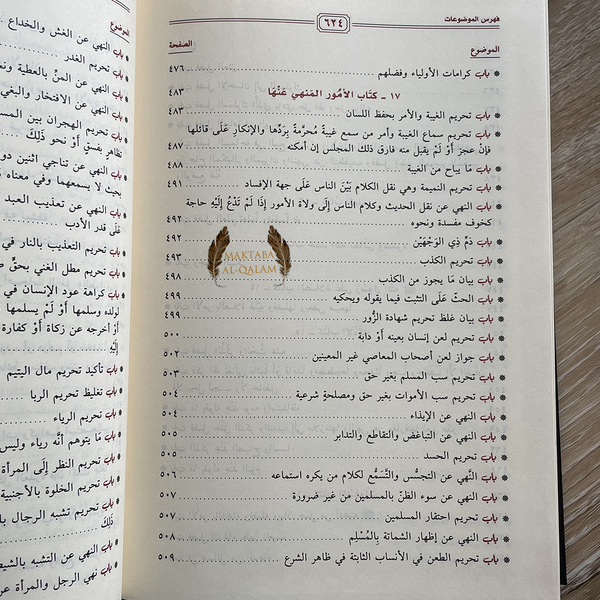 فهرس الموضوعات
٦٢٤
الموضوع الصفحة
* باب كرامات الأولياء وفضلهم ................ ٤٧٦
١٧ ـ كتَاب الأمُور المَنهي عَنْهَا ٤٨٣
* باب تحريم الغيبة والأمر بحفظ اللسان ................ ٤٨٣
* باب تحريم سماع الغيبة وأمر من سمع غيبةً مُحرَّمةً بِرَدِّها والإنكارِ عَلَى قائلها
فإنْ عجز أوْ لَمْ يقبل منه فارق ذلك المجلس إن أمكنه ................ ٤٨٧
* باب مَا يباح من الغيبة ................ ٤٨٨
* باب تحريم النميمة وهي نقل الكلام بَيْنَ الناس عَلَى جهة الإفساد ................ ٤٩١
* باب النهي عن نقل الحديث وكلام الناس إلَى ولاة الأمور إذَا لَمْ تَدْعُ إلَيْهِ حاجة
كخوف مفسدة ونحوه ................ ٤٩٢
* باب ذمّ ذِي الوَجْهَيْن ................ ٤٩٢
* باب تحريم الكذب ................ ٤٩٣
* باب بيان مَا يجوز من الكذب ................ ٤٩٨
* باب الحثّ عَلَى التثبت فيما يقوله ويحكيه ................ ٤٩٩
* باب بيان غلظ تحريم شهادة الزُّور ................ ٤٩٩
* باب تحريم لعن إنسان بعينه أوْ دابة ................ ٥٠٠
* باب جواز لعن أصحاب المعاصي غير المعينين ................ ٥٠٢
* باب تحريم سب المسلم بغير حق ................ ٥٠٣
* باب تحريم سب الأموات بغير حق ومصلحةٍ شرعية ................ ٥٠٤
* باب النهي عن الإيذاء ................ ٥٠٤
* باب النهي عن التباغض والتقاطع والتدابر ................ ٥٠٥
* باب تحريم الحسد ................ ٥٠٥
* باب النَّهي عن التجسُّس والتَّسَمُّع لكلام من يكره استماعه ................ ٥٠٦
* باب النهي عن سوء الظنّ بالمسلمين من غير ضرورة ................ ٥٠٧
* باب تحريم احتقار المسلمين ................ ٥٠٧
* باب النهي عن إظهار الشماتة بِالمُسْلِم ................ ٥٠٨
* باب تحريم الطعن في الأنساب الثابتة في ظاهر الشرع ................ ٥٠٩
MAKTABA
AL-QALAM
الموضوع
* باب النهي عن الغش والخداع
* باب تحريم الغدر
* باب النهي عن المنّ بالعطية
* باب النهي عن الافتخار والبغي
* باب تحريم الهجران بين
تظاهرٍ بفسقٍ أوْ نحو ذَلِكَ
* باب النهي عن تناجي اثنين
بحيث لا يسمعهما وفي معناه
* باب النهي عن تعذيب العبد
عَلَى قدر الأدب
* باب تحريم التعذيب بالنار في
* باب تحريم مطل الغني بحقٍّ
* باب كراهة عود الإنسان في
لولده وسلمها أوْ لَمْ يسلمها
أوْ أخرجه عن زكاة أوْ كفارة
إلَيْهِ
* باب تأكيد تحريم مال اليتيم
* باب تغليظ تحريم الربا
* باب تحريم الرياء
* باب مَا يتوهم أنَّه رياء وليس
* باب تحريم النظر إلَى المرأة
* باب تحريم الخلوة بالأجنبية
* باب تحريم تشبه الرجال
ذَلِكَ
* باب النهي عن التشبه
* باب نهي الرجل والمرأة